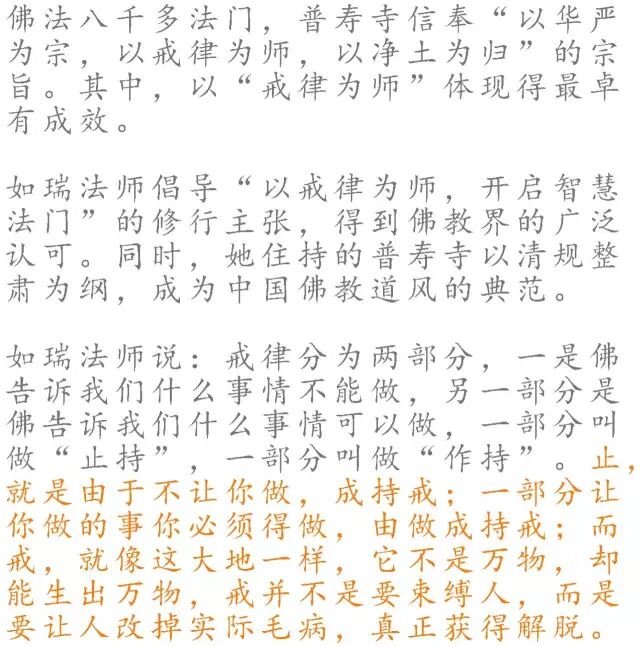 佛法八千多法门，普寿寺信奉“以华严
为宗，以戒律为师，以净土为归”的宗
旨。其中，以“戒律为师”体现得最卓
有成效。
如瑞法师倡导“以戒律为师，开启智慧
法门”的修行主张，得到佛教界的广泛
认可。同时，她住持的普寿寺以清规整
肃为纲，成为中国佛教道风的典范。
如瑞法师说：戒律分为两部分，一是佛
告诉我们什么事情不能做，另一部分是
佛告诉我们什么事情可以做，一部分叫
做“止持”，一部分叫做“作持”。止，
就是由于不让你做，成持戒；一部分让
你做的事你必须得做，由做成持戒；而
戒，就像这大地一样，它不是万物，却
能生出万物，戒并不是要束缚人，而是
要让人改掉实际毛病，真正获得解脱。